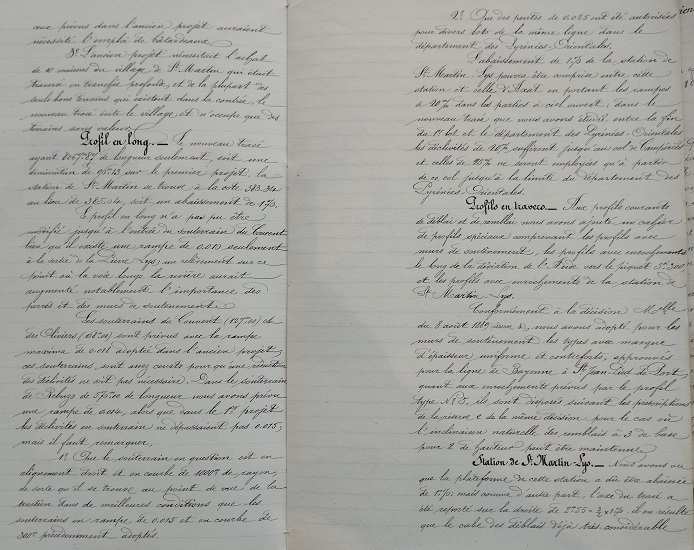 aux piéces dans l'ancien projet auraient
nécessité l'emploi de bâtardeaux.
3° L'ancien projet nécessitait l'achat
de maisons du village de St Martin qui était
traversé en tranchée profonde, et de la plupart des
seuls bons terrains qui existent dans la contrée; le
nouveau tracé évite le village et n'occupe que des
terrains sans valeur.
Profil en long. — Le nouveau tracé
ayant de longueur seulement, soit une
diminution de sur le premier projet la
station de St Martin se trouve à la cote 383.34
au lieu de soit un abaissement de 1.70.
Le profil en long n'a pas pu être
modifié jusqu'à l'entrée du souterrain du Couvent
bien qu'il existe une rampe de 0.010 seulement
à la sortie de la Pierre Lys; un relèvement sur ce
point où la voie longe la rivière aurait
augmenté notablement l'importance des
perrés et des murs de soutènement.
Les souterrains du Couvent et
des Oliviers sont prévus avec la rampe
maxima de 0.018 adoptée dans l'ancien projet,
ces souterrains sont assez courts pour qu'une réduction
des déclivités ne soit pas nécessaire. Dans le souterrain
de Rebuzo de de longueur nous avons prévu
une rampe de 0.014, alors que dans le 1er projet
les déclivités en souterrain ne dépassaient pas 0.015;
mais il faut remarquer,
1° Que le souterrain en question est en
alignement droit et en courbe de 1000m de rayon,
de sorte qu'il se trouve au point de vue de la
traction dans de meilleures conditions que les
souterrains en rampe de 0.015 et en courbe de
300m précédemment adoptés.
2° Que des pentes de 0.025 ont été autorisées
pour divers lots de la même ligne dans le
département des Pyrénées-Orientales.
L'abaissement de 1.70 de la station de
St Martin-Lys pourra être compris entre cette
station et celle d'Axat en portant les rampes
à dans les parties à ciel ouvert; dans le
nouveau tracé que nous avons étudié entre la fin
du 1er lot et le département des Pyrénées-Orientales
les déclivités de 20% suffiront jusqu'au col de Campérié
et celles de 25% ne seront employées qu'à partir
de ce col jusqu'à la limite du département des
Pyrénées-Orientales.
Profils en travers. — Aux profils courants
de déblai et de remblai nous avons ajouté un cahier
de profils spéciaux comprenant les profils avec
murs de soutènement, les profils avec enrochements
le long de la déviation de l'Aude vers le piquet
et les profils avec enrochements de la station de
St Martin Lys.
Conformément à la décision Melle
du 8 août 1889 nous avons adopté pour les
murs de soutènement les types avec masque
d'épaisseur uniforme et contreforts, approuvés
pour la ligne de Bayonne à St Jean Pied de Port
quant aux enrochements prévus par le profil
type No 5, ils sont disposés suivant les prescriptions
de la réserve C de la même décision pour le cas où
l'inclinaison naturelle des remblais à 3 de base
pour 2 de hauteur peut être maintenue.
Station de St Martin-Lys. — Nous avons vu
que la plateforme de cette station a dû être abaissée
de 1.70; mais comme d'autre part, l'axe du tracé a
été reporté sur la droite de 2.55 = 3/2 x 1.70 il en résulte
que le cube des déblais déjà très considérable